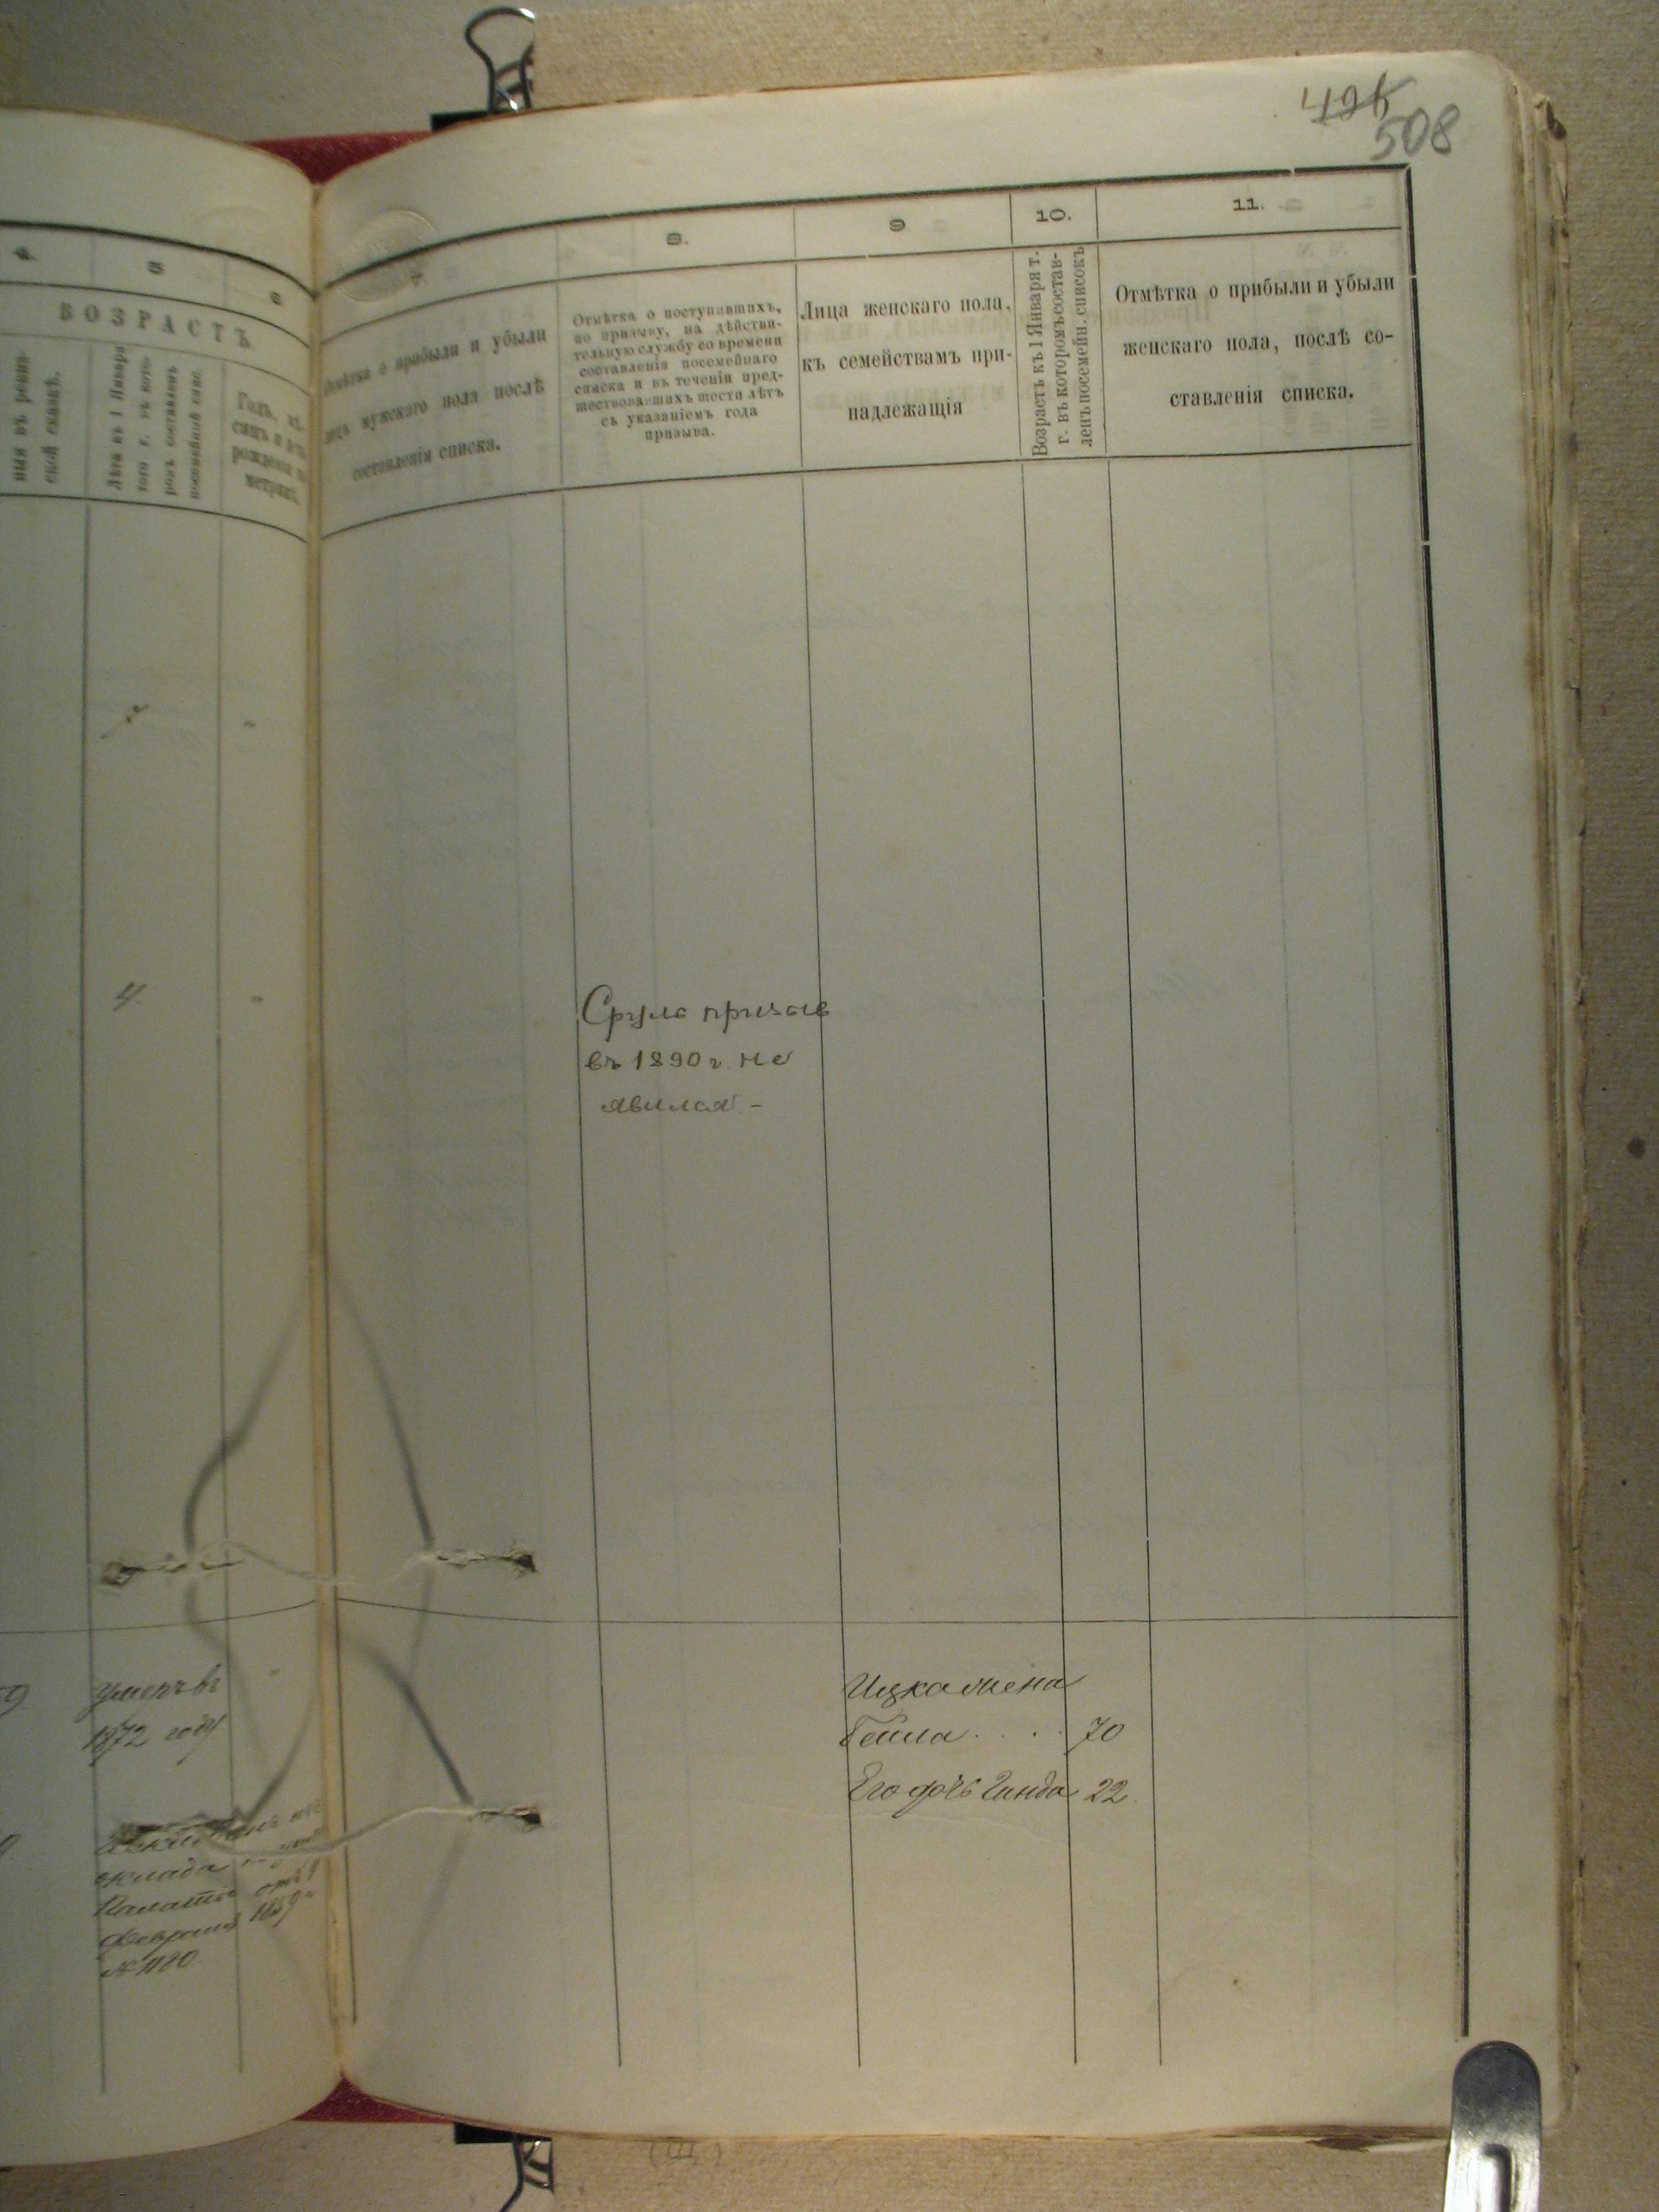 508
4
5
6
ВОЗРАСТЪ
Лѣта къ 1 Января
того г. въ кото-
ромъ составленъ
посемейный спис.
Годъ, мѣ-
рожденія
метрик.
8.
9
10.
11.
Отмѣтка о прибыли и убыли
мужскаго пола послѣ
составленія списка.
Отмѣтка о поступившихъ,
по призыву, на дѣйстви-
тельную службу со времени
составленія посемейнаго
списка и въ теченіи пред-
шествовавшихъ шести лѣтъ
съ указаніемъ года
призыва.
Лица женскаго пола,
къ семействамъ при-
надлежащія
Возрастъ къ 1 Января т.
г. въ которомъ состав-
ленъ посемейн. списокъ
Отмѣтка о прибыли и убыли
женскаго пола, послѣ со-
ставленія списка.
4
Сруль призыв
въ 1890 г. не
явился. –
умеръ въ
1872 году
оклада
Палаты отъ
Февраля
№ 1180
Ицка жена
Гейла . . . 70
Его дочь Гинда 22